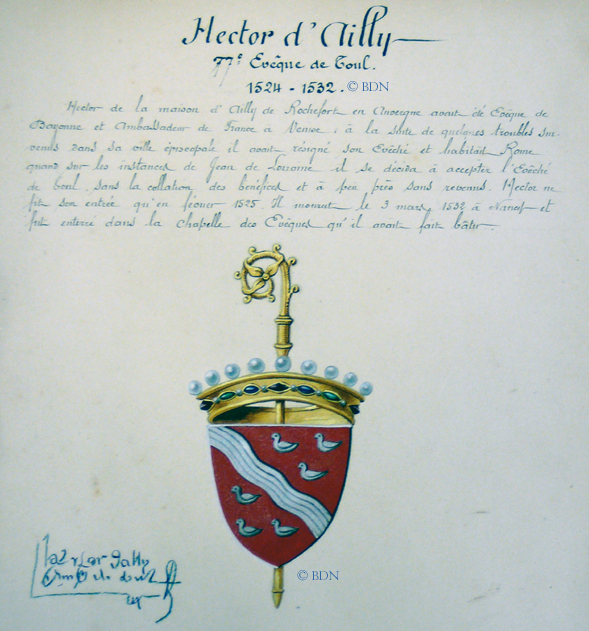 Hector d'Ailly
77e Evêque de Toul.
1524 - 1532. © BDN
Hector de la maison d'Ailly de Rochefort en Auvergne avait été Evêque de
Bayonne et Ambassadeur de France à Venise ; à la suite de quelques troubles sur-
venus dans sa ville épiscopale il avait résigné son Evêché et habitait Rome
quand sur les instances de Jean de Lorraine il se décida à accepter l'Evêché
de Toul, sans la collation des bénéfices et à peu près sans revenus. Hector ne
fit son entrée qu'en février 1525. Il mourut le 3 mars 1532 à Nancy et
fut enterré dans la chapelle des Evêques qu'il avait fait bâtir.
© BDN